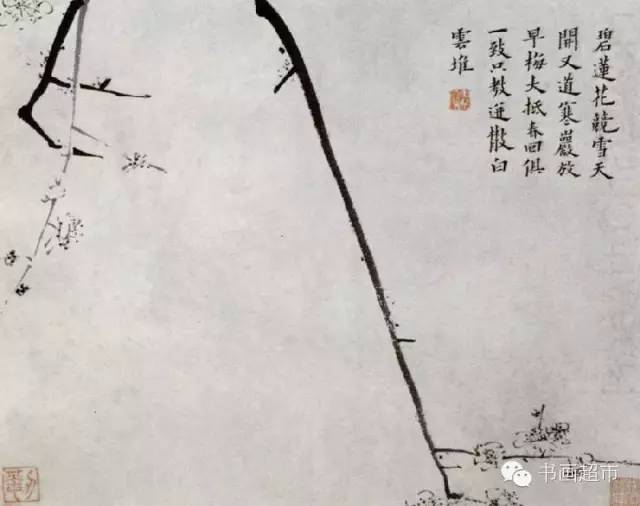 碧蓮花競雪天
開又道寒巖放
早梅大抵春回俱
一致只教逆散白
雲堆
书画超市